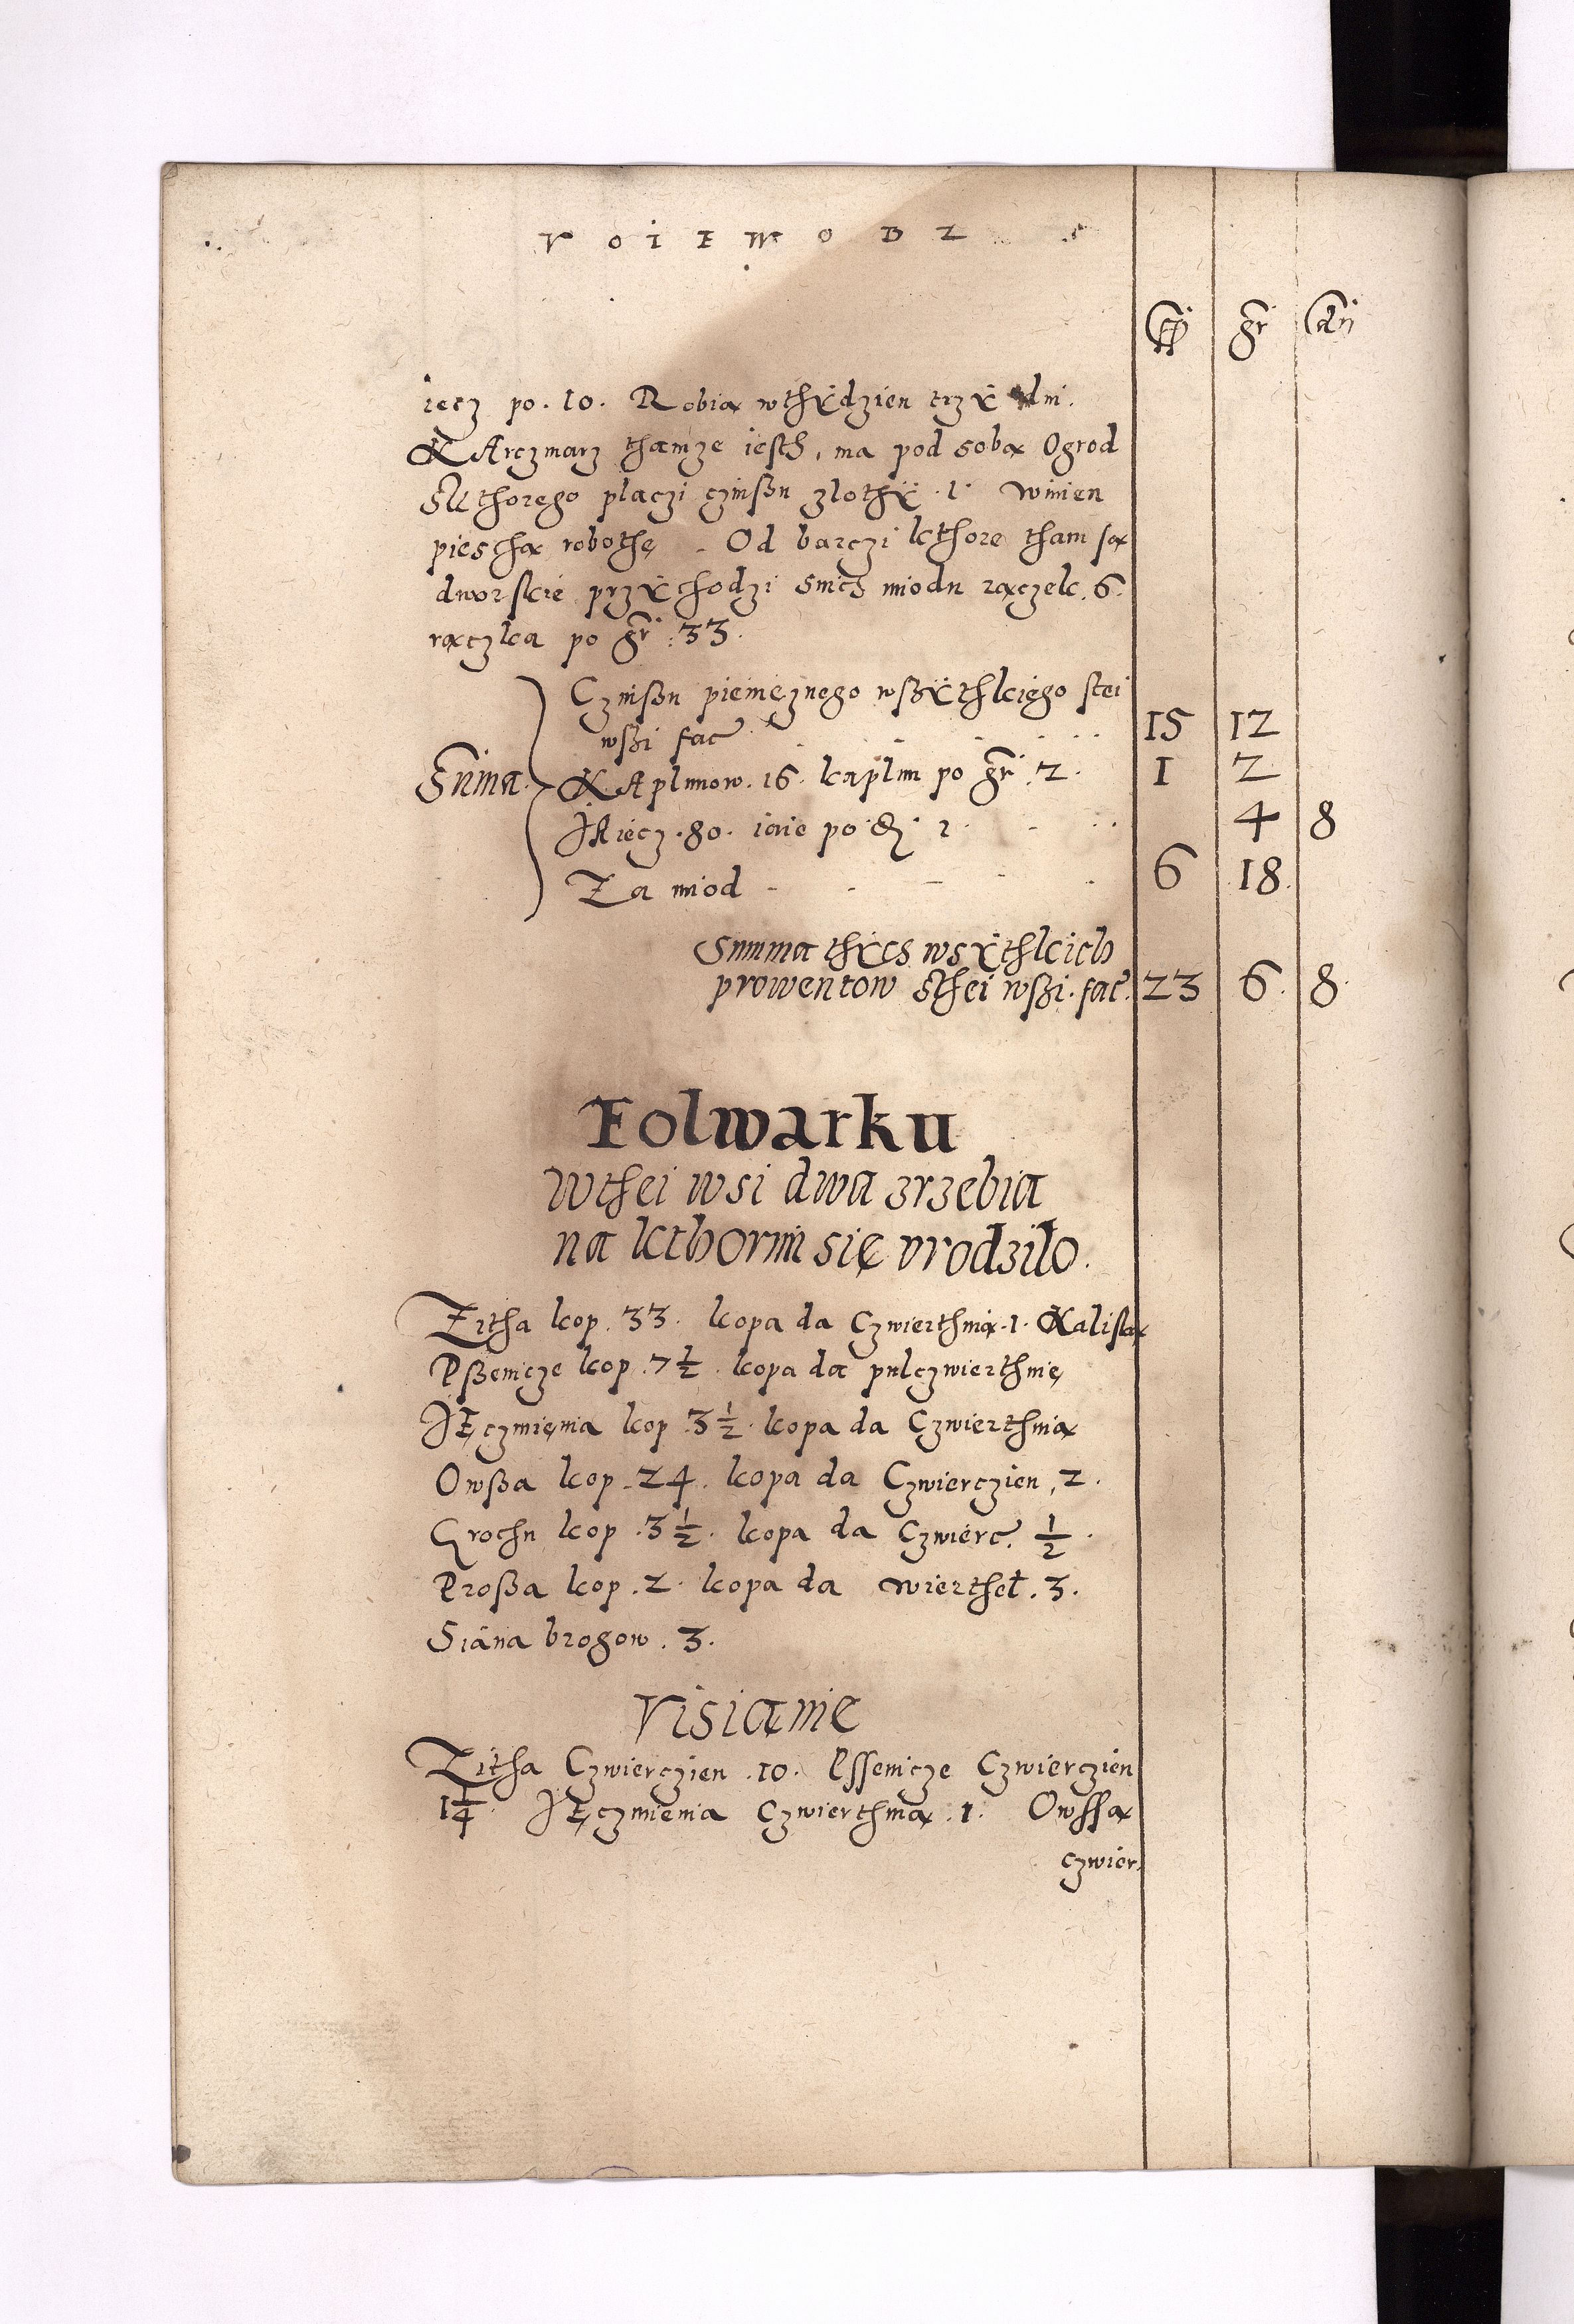 VOIEWODZ
fl gr dn
iecz po. 10. Robią wthÿdzien trzÿ dni.
KArczmarz thamże iesth, ma pod sobą Ogrod
Skthorego placzi czinßu zlothÿ .1. winien
piesthą robothę . Od barczi kthore tham są
dworskie przÿchodzi Smich miodu rączek .6.
rączka po gr .33.
Czinßu pieniężnego wßÿthkiego stei
wßi fac̃ 15 12
Sum̃a KApłunow .16. kapłun po gr .2. 1 2
JAiecz .80. iaie po 1 4 8
Za miod 6 18
Summa thÿch wsÿthkich
prowentow Sthei wßi. fac̃. 23 6 8
Folwarku
Wthei wsi dwa zrzebia
na kthorim się vrodziło.
Zitha kop .33. kopa da Czwierthnią .1. Kaliską
Pßenicze kop .7½. kopa da pulczwierthnie
JĘczmienia kop .3½. kopa da Czwierthnią
Owßa kop .24. kopa da Czwierczien .2.
Grochu kop .3½. kopa da Czwierc̃. ½.
Proßa kop .2. kopa da wierthel .3.
Siana brogow .3.
Visianie
Zitha Czwierczien .10. Pssenicze Czwierczien
1¼. JĘczmienia Czwierthnia .1. Owssa
czwier,